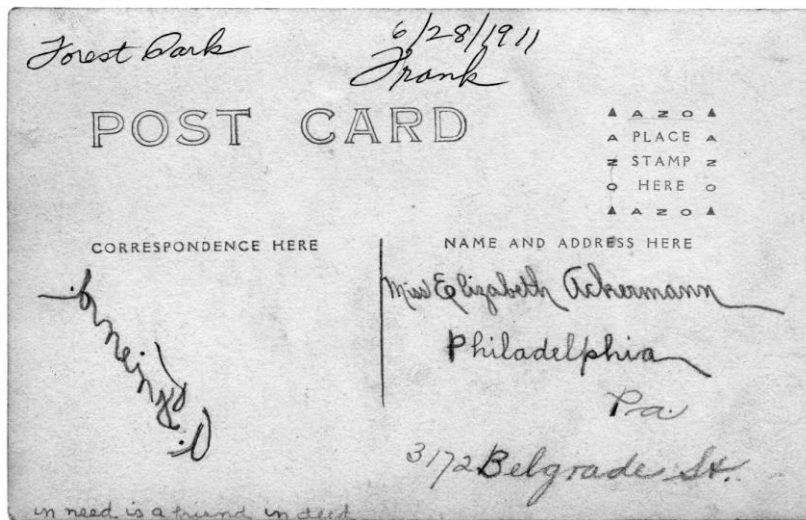 Forest Park
6/28/1911
Frank
POST CARD
▲ A Z O ▲
A PLACE A
Z STAMP Z
O HERE O
▲ A Z O ▲
CORRESPONDENCE HERE
NAME AND ADDRESS HERE
Miss Elizabeth Ackermann
Philadelphia
Pa.
3172 Belgrade St.
in need is a friend in deed